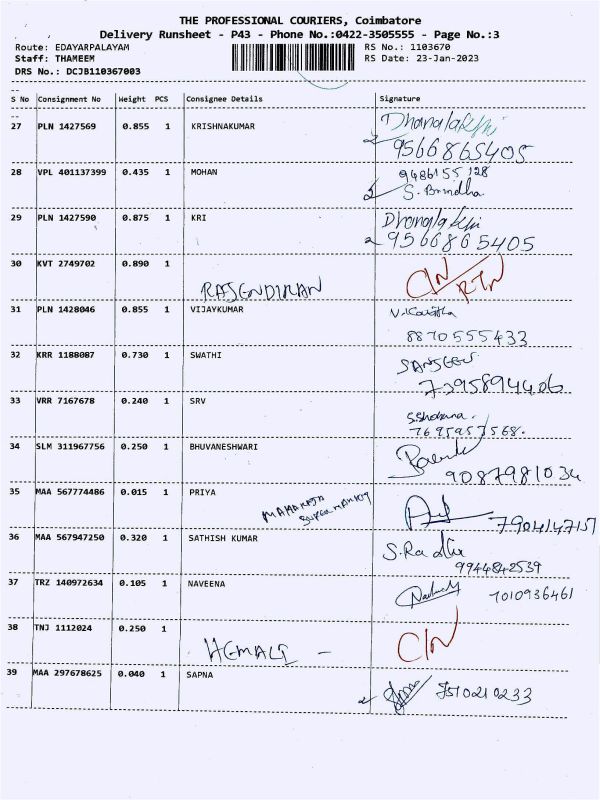 THE PROFESSIONAL COURIERS, Coimbatore
Delivery Runsheet - P43 - Phone No.:0422-3505555 - Page No.:3
Route: EDAYARPALAYAM RS No.: 1103670
Staff: THAMEEM RS Date: 23-Jan-2023
DRS No.: DCJB110367003
S No Consignment No Weight PCS Consignee Details Signature
27 PLN 1427569 0.855 1 KRISHNAKUMAR Dhanalakshmi
9566865405
28 VPL 401137399 0.435 1 MOHAN 9486155128
S. Brindha
29 PLN 1427590 0.875 1 KRI
9566865405
30 KVT 2749702 0.890 1
RAJENDIRAN C/N RTN
31 PLN 1428046 0.855 1 VIJAYKUMAR N. Kavitha
8870555433
32 KRR 1188087 0.730 1 SWATHI
7395894406
33 VRR 7167678 0.240 1 SRV
7695957568.
34 SLM 311967756 0.250 1 BHUVANESHWARI
9087981034
35 MAA 567774486 0.015 1 PRIYA
MAHARAJA
36 MAA 567947250 0.320 1 SATHISH KUMAR S. Radha
9944842539
37 TRZ 140972634 0.105 1 NAVEENA 7010936461
38 TNJ 1112024 0.250 1
C/N
39 MAA 297678625 0.040 1 SAPNA 7510210233